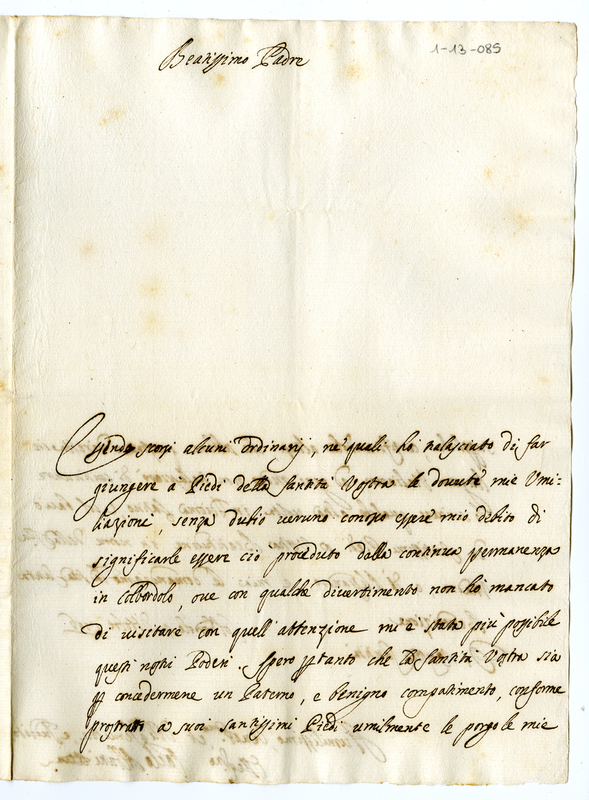 1-13-085
Beatissimo Padre
Essendo scorsi alcuni ordinarij, ne' quali hò tralasciato di far
giungere a Piedi della Santità Vostra le dovute mie Umi-
liazioni, senza dubio veruno conosco essere mio debito di
significarle essere ciò proceduto dalla continua permanenza
in Colbordolo, ove con qualche divertimento non hò mancato
di visitare con quell'attenzione mi è stata più possibile
questi nostri Poderi. Spero ptanto che la Santità Vostra sia
p concedermene un Paterno, e benigno compatimento, conforme
prostrato a suoi santissimi Piedi umilmente le porgo le mie